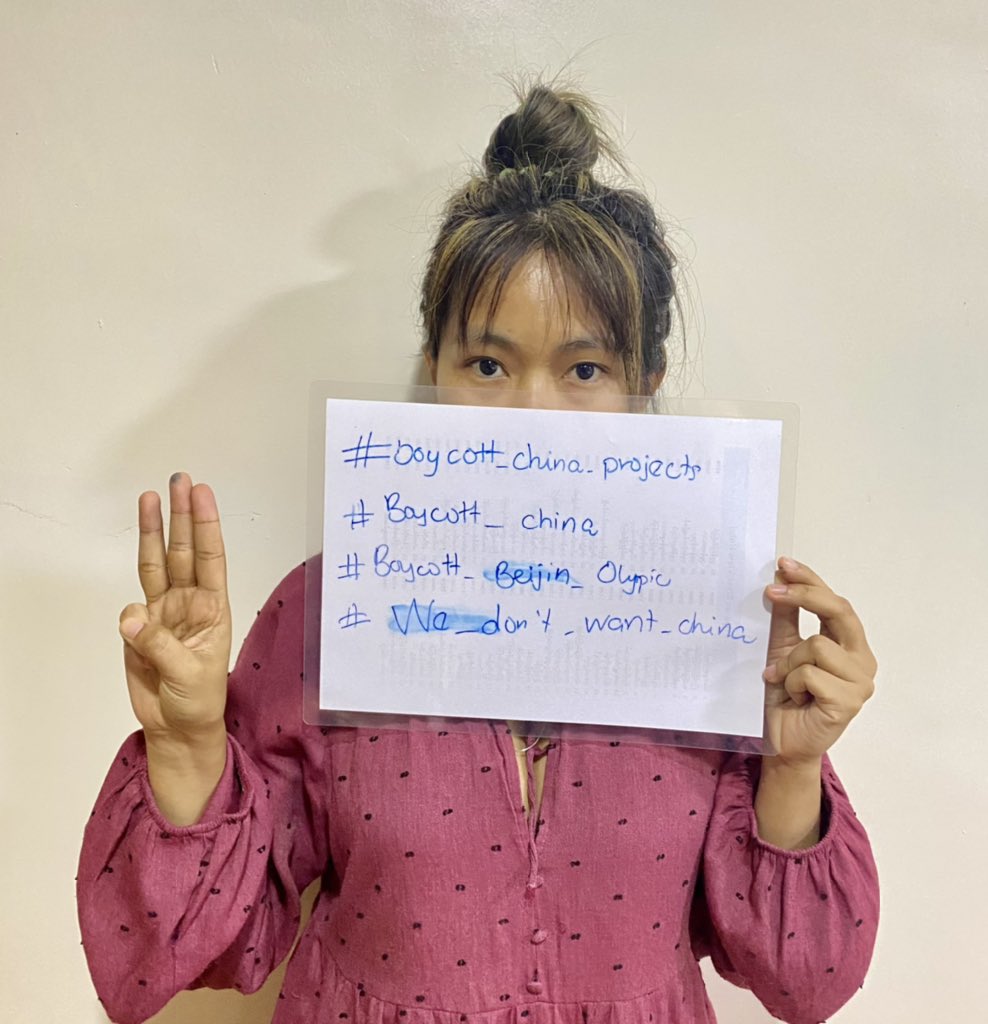 #boycott_china_projects
# Boycott_ china
# Boycott_ Beijin_ Olypic
# We_don't_want_china